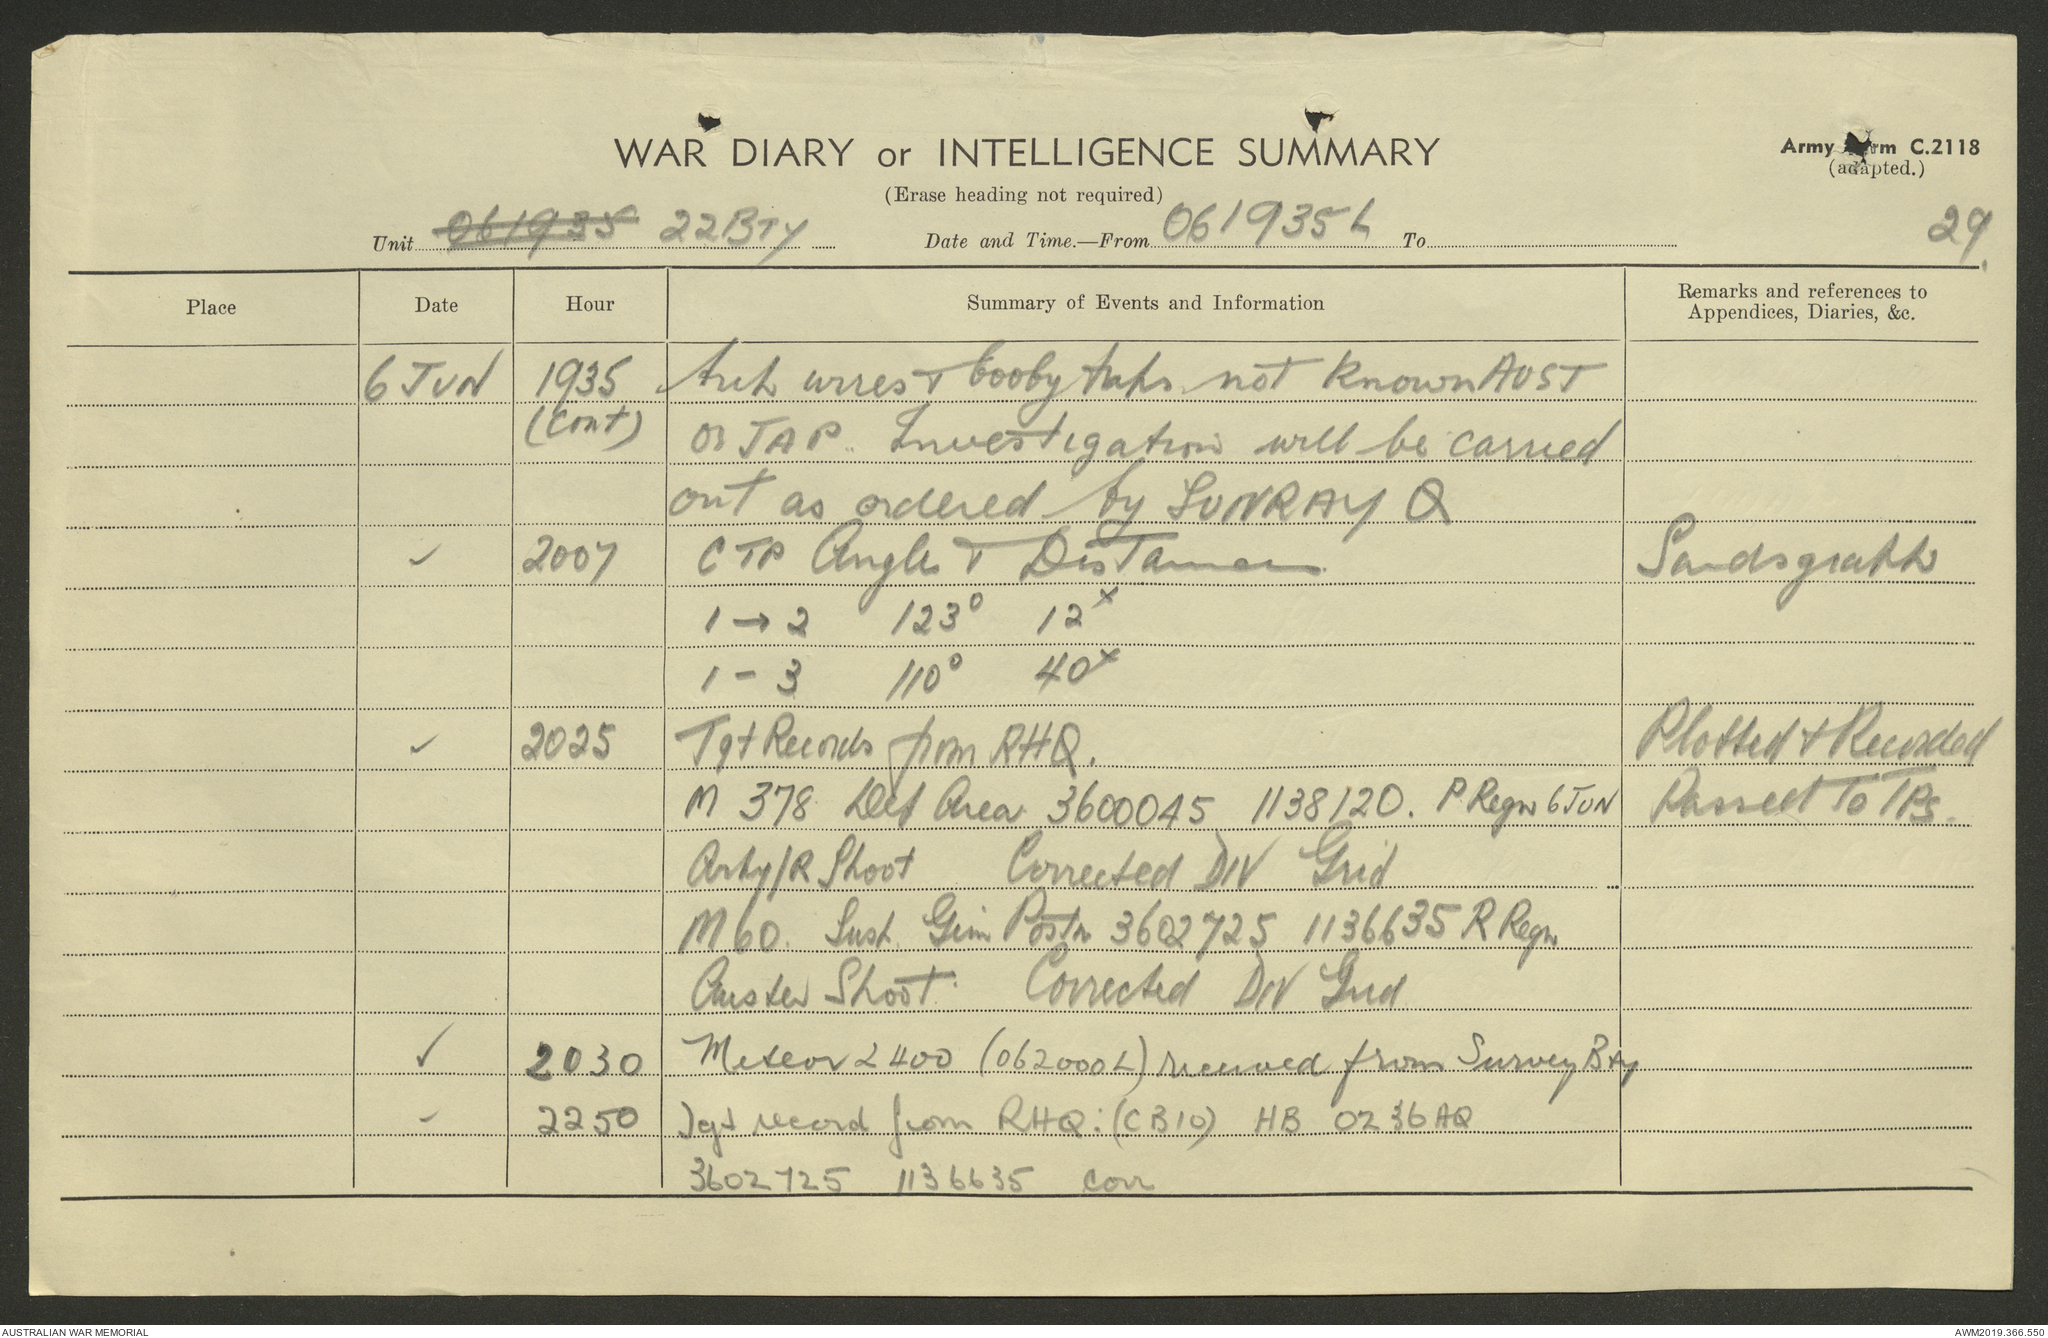 WAR DIARY or INTELLIGENCE SUMMARY
Army Form C.2118
(Erase heading not required)
(adapted.)
Unit 061935 22 BTY Date and Time.—From 061935L To
29.
Place Date Hour Summary of Events and Information Remarks and references to Appendices, Diaries, &c.
6 JUN 1935 wires & booby traps not known AUST
(Cont) or JAP. Investigation will be carried
out as ordered by SUNRAY Q
✓ 2007 CTP Angles & Distances Sandsgraph
1 → 2 123° 12ˣ
1 - 3 110° 40ˣ
✓ 2025 Tgt Records from RHQ. Plotted & Recorded
M 378 Def Area 3600045 1138120. P Regn 6 JUN Passed To TPs.
Arty/R Shoot Corrected DIV Grid
M 60. Susp. Gun Postn 3602725 1136635 R Regn
Auster Shoot. Corrected DIV Grid
✓ 2030 Meteor 2400 (062000L) received from Survey Bty
✓ 2250 Tgt record from RHQ: (CB10) HB 0236AQ
3602725 1136635 corr
AUSTRALIAN WAR MEMORIAL
AWM2019.366.550